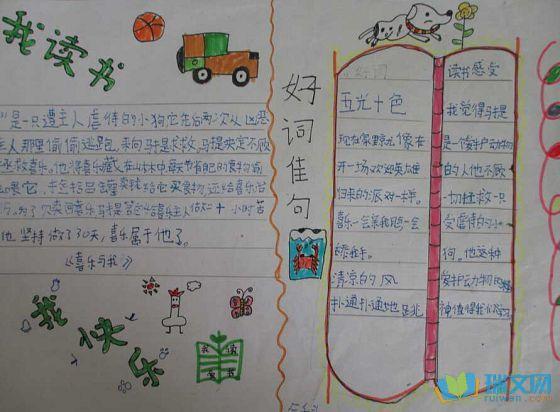 我读书
是一只遭主人虐待的小狗它在后两次从凶恶
主人那里偷偷逃跑来向马提求救马提决定不顾
拯救喜乐。他将喜乐藏在山林中每天节省自己的食物
给它买食物还给喜乐治
为了
小时苦
他坚持做了30天,喜乐属于他了。
《喜乐与我》
我快乐
我读
我乐
好词佳句
好词
五光十色
现在家里就像在
开一场欢迎英雄
归来的派对一样。
喜乐一会亲我的一会
舔我手。
清凉的风
扑通扑通地
读书感受
我觉得马提
是一个爱护动物
的人他不顾
一切拯救一只
受虐待的小
狗。他这种
爱护动物的精
神值得我们学习
瑞文网
ruiwen.com